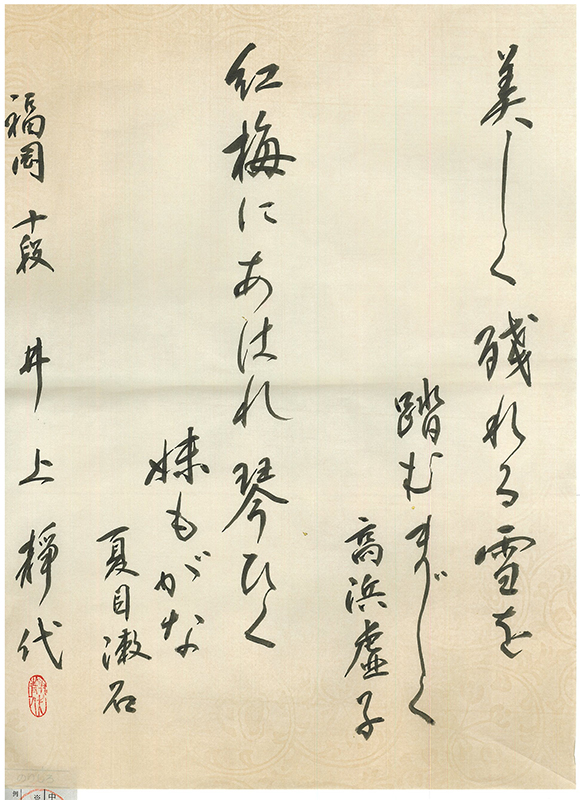 美しく残れる雪を
踏むまじく
高浜虚子
紅梅にあはれ琴ひく
妹もがな
夏目漱石
福岡 十段 井上静代